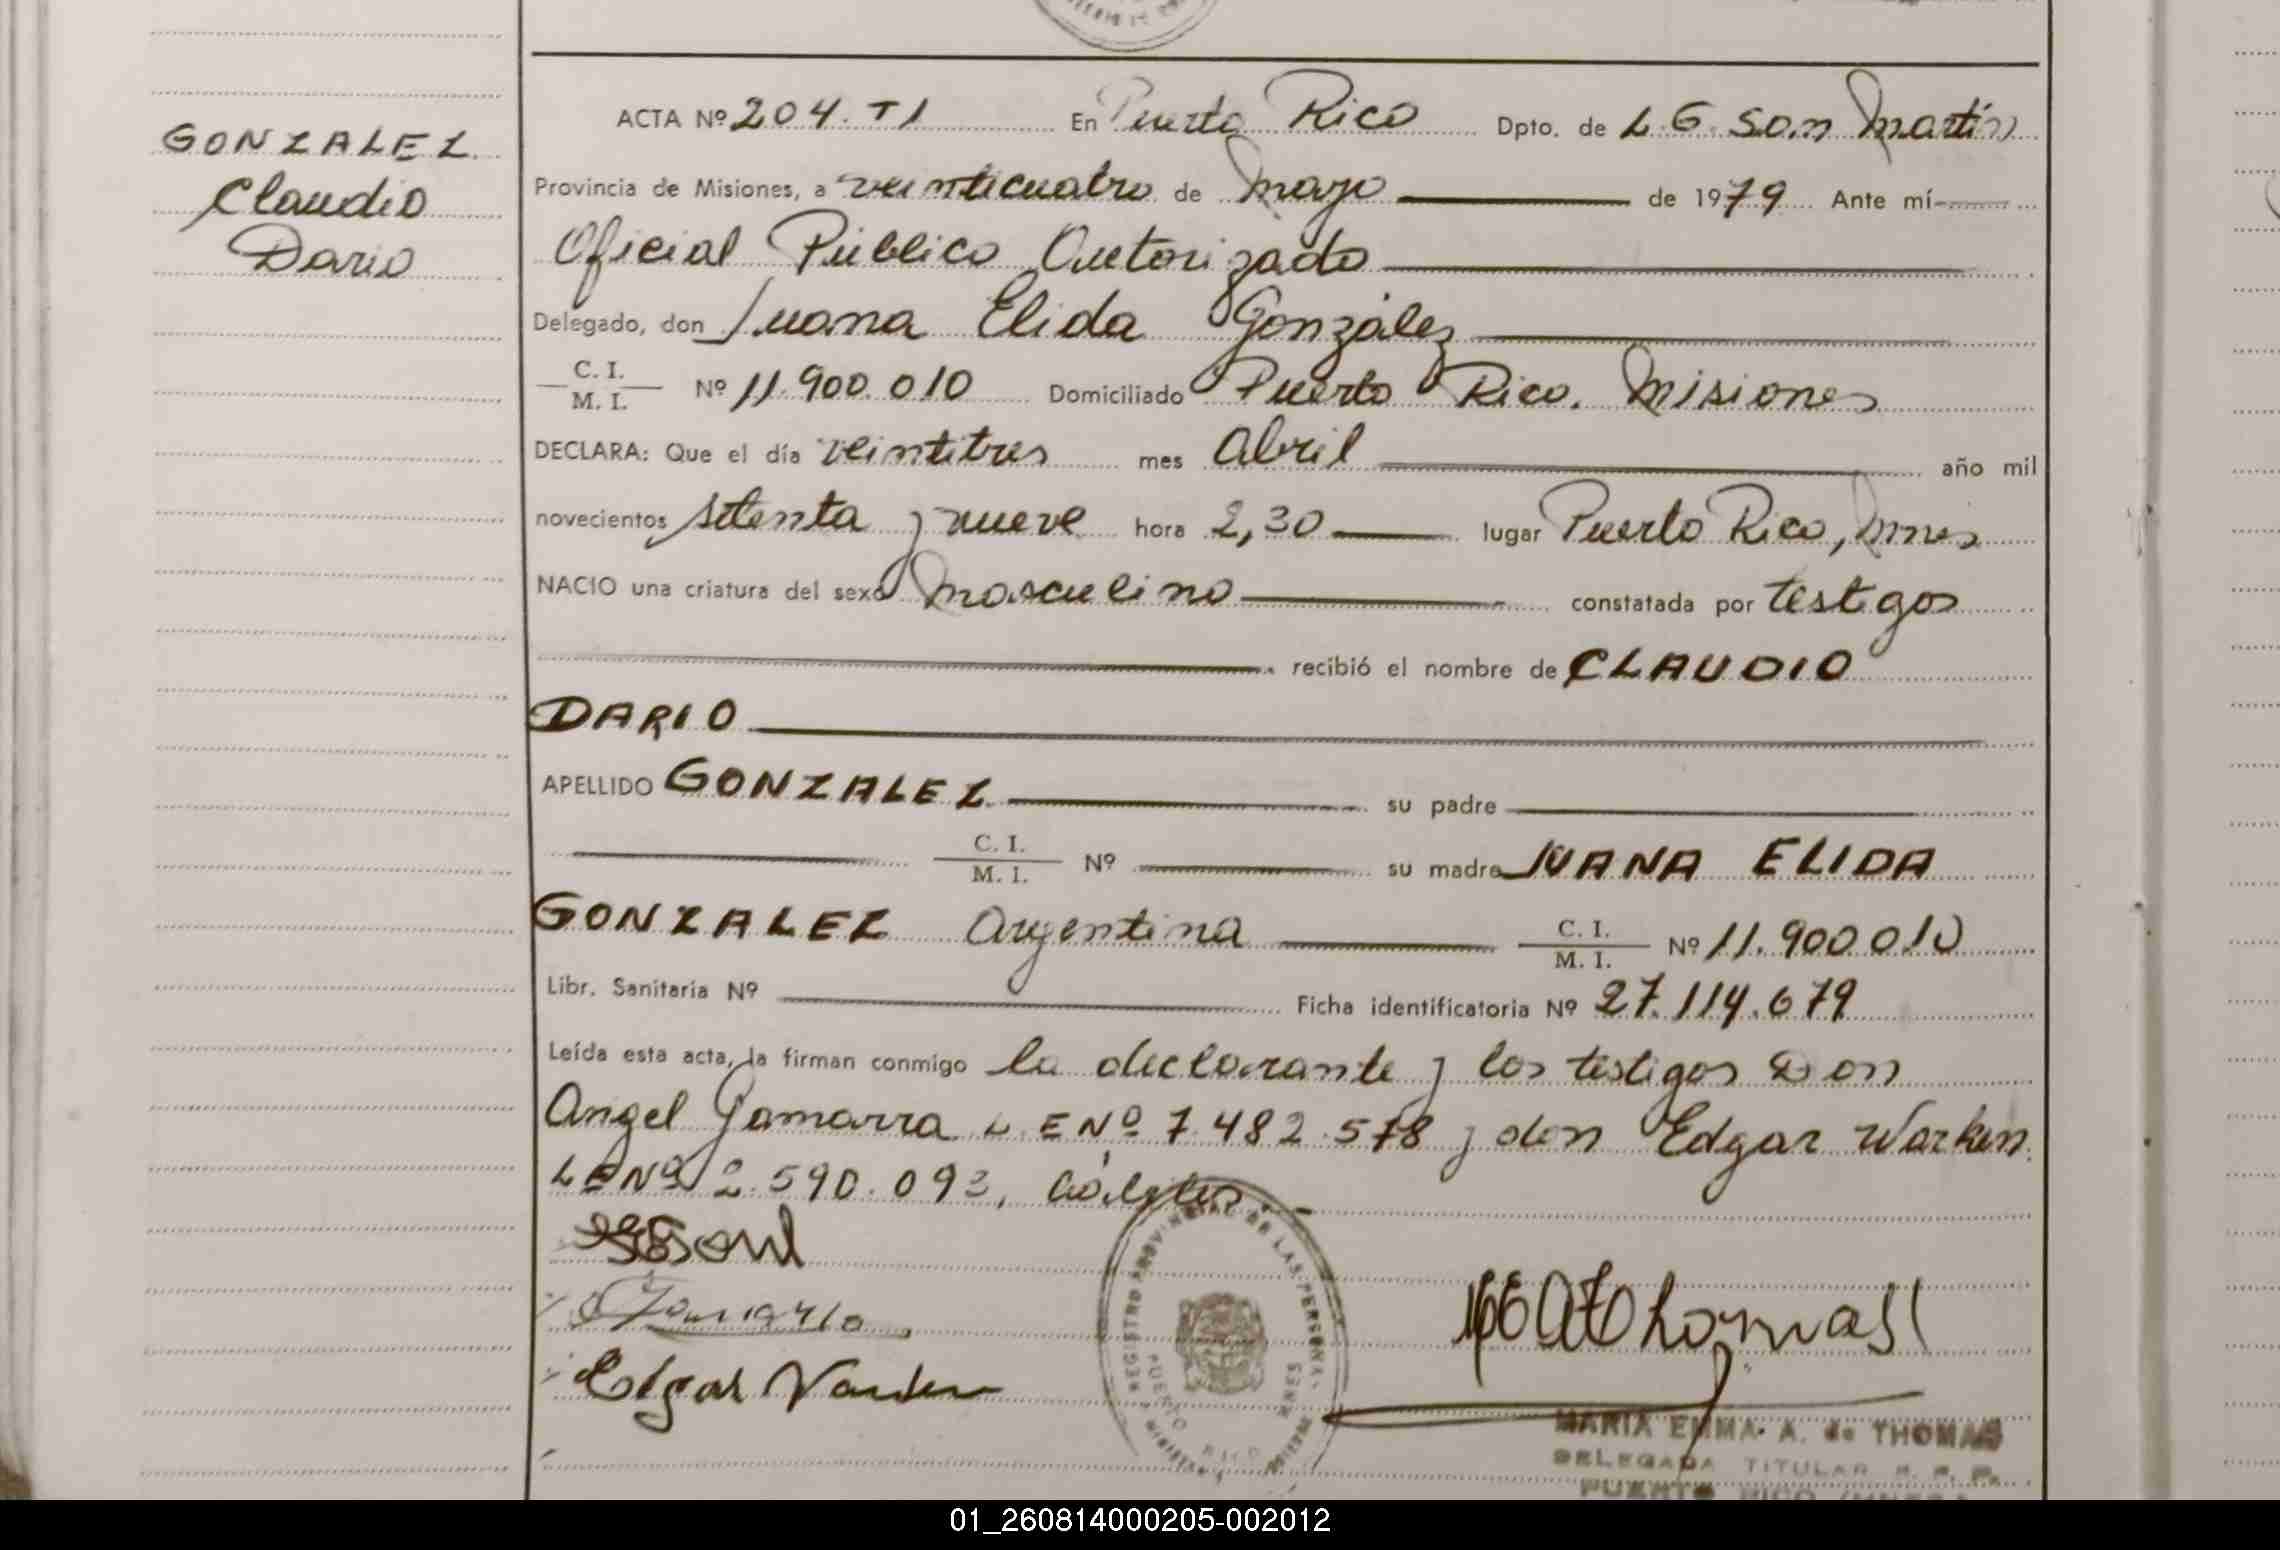 ACTA Nº 204. T1 En Puerto Rico Dpto. de L.G. San Martín
GONZALEZ
Claudio
Dario
Provincia de Misiones, a veinticuatro de Mayo de 1979 Ante mí
Oficial Público Autorizado
Delegado, don Juana Elida González
C. I.
M. I. Nº 11.900.010 Domiciliado Puerto Rico. Misiones
DECLARA: Que el día veintitres mes Abril año mil
novecientos setenta y nueve hora 2,30 lugar Puerto Rico, Mnes
NACIO una criatura del sexo Masculino constatada por testigos
recibió el nombre de CLAUDIO
DARIO
APELLIDO GONZALEZ su padre
C. I.
M. I. Nº su madre JUANA ELIDA
GONZALEZ Argentina C. I.
M. I. Nº 11.900.010
Libr. Sanitaria Nº Ficha identificatoria Nº 27.114.679
Leída esta acta, la firman conmigo la declarante y los testigos Don
Angel Gamarra L E Nº 7.482.578 y don Edgar Warken
L E Nº 2.590.093,
Edgar
REGISTRO PROVINCIAL DE LAS PERSONAS
PUERTO RICO MNES
MARIA EMMA A. de THOMAS
DELEGADA TITULAR R. P. P.
PUERTO RICO
01_260814000205-002012